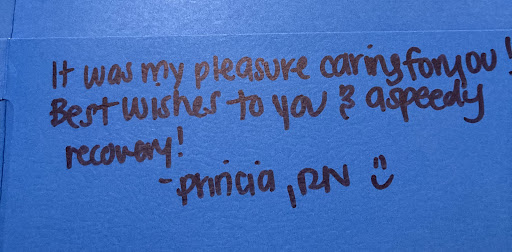 It was my pleasure caring for you!
Best wishes to you & a speedy
recovery!
, RN